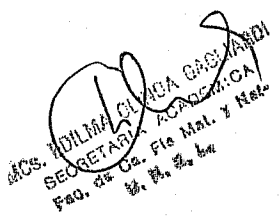 MCS. EDILMA OLINDA GAGLIARDI
SECRETARIA ACADEMICA
Fac. de Cs. Fis Mat. y Nat.
U. N. S. L.